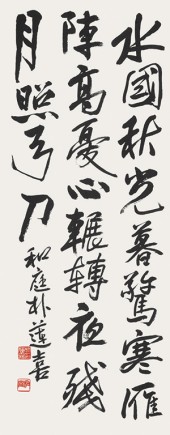 水國秋光暮驚寒雁
陣高憂心輾轉夜殘
月照弓刀
和庭朴蓮喜